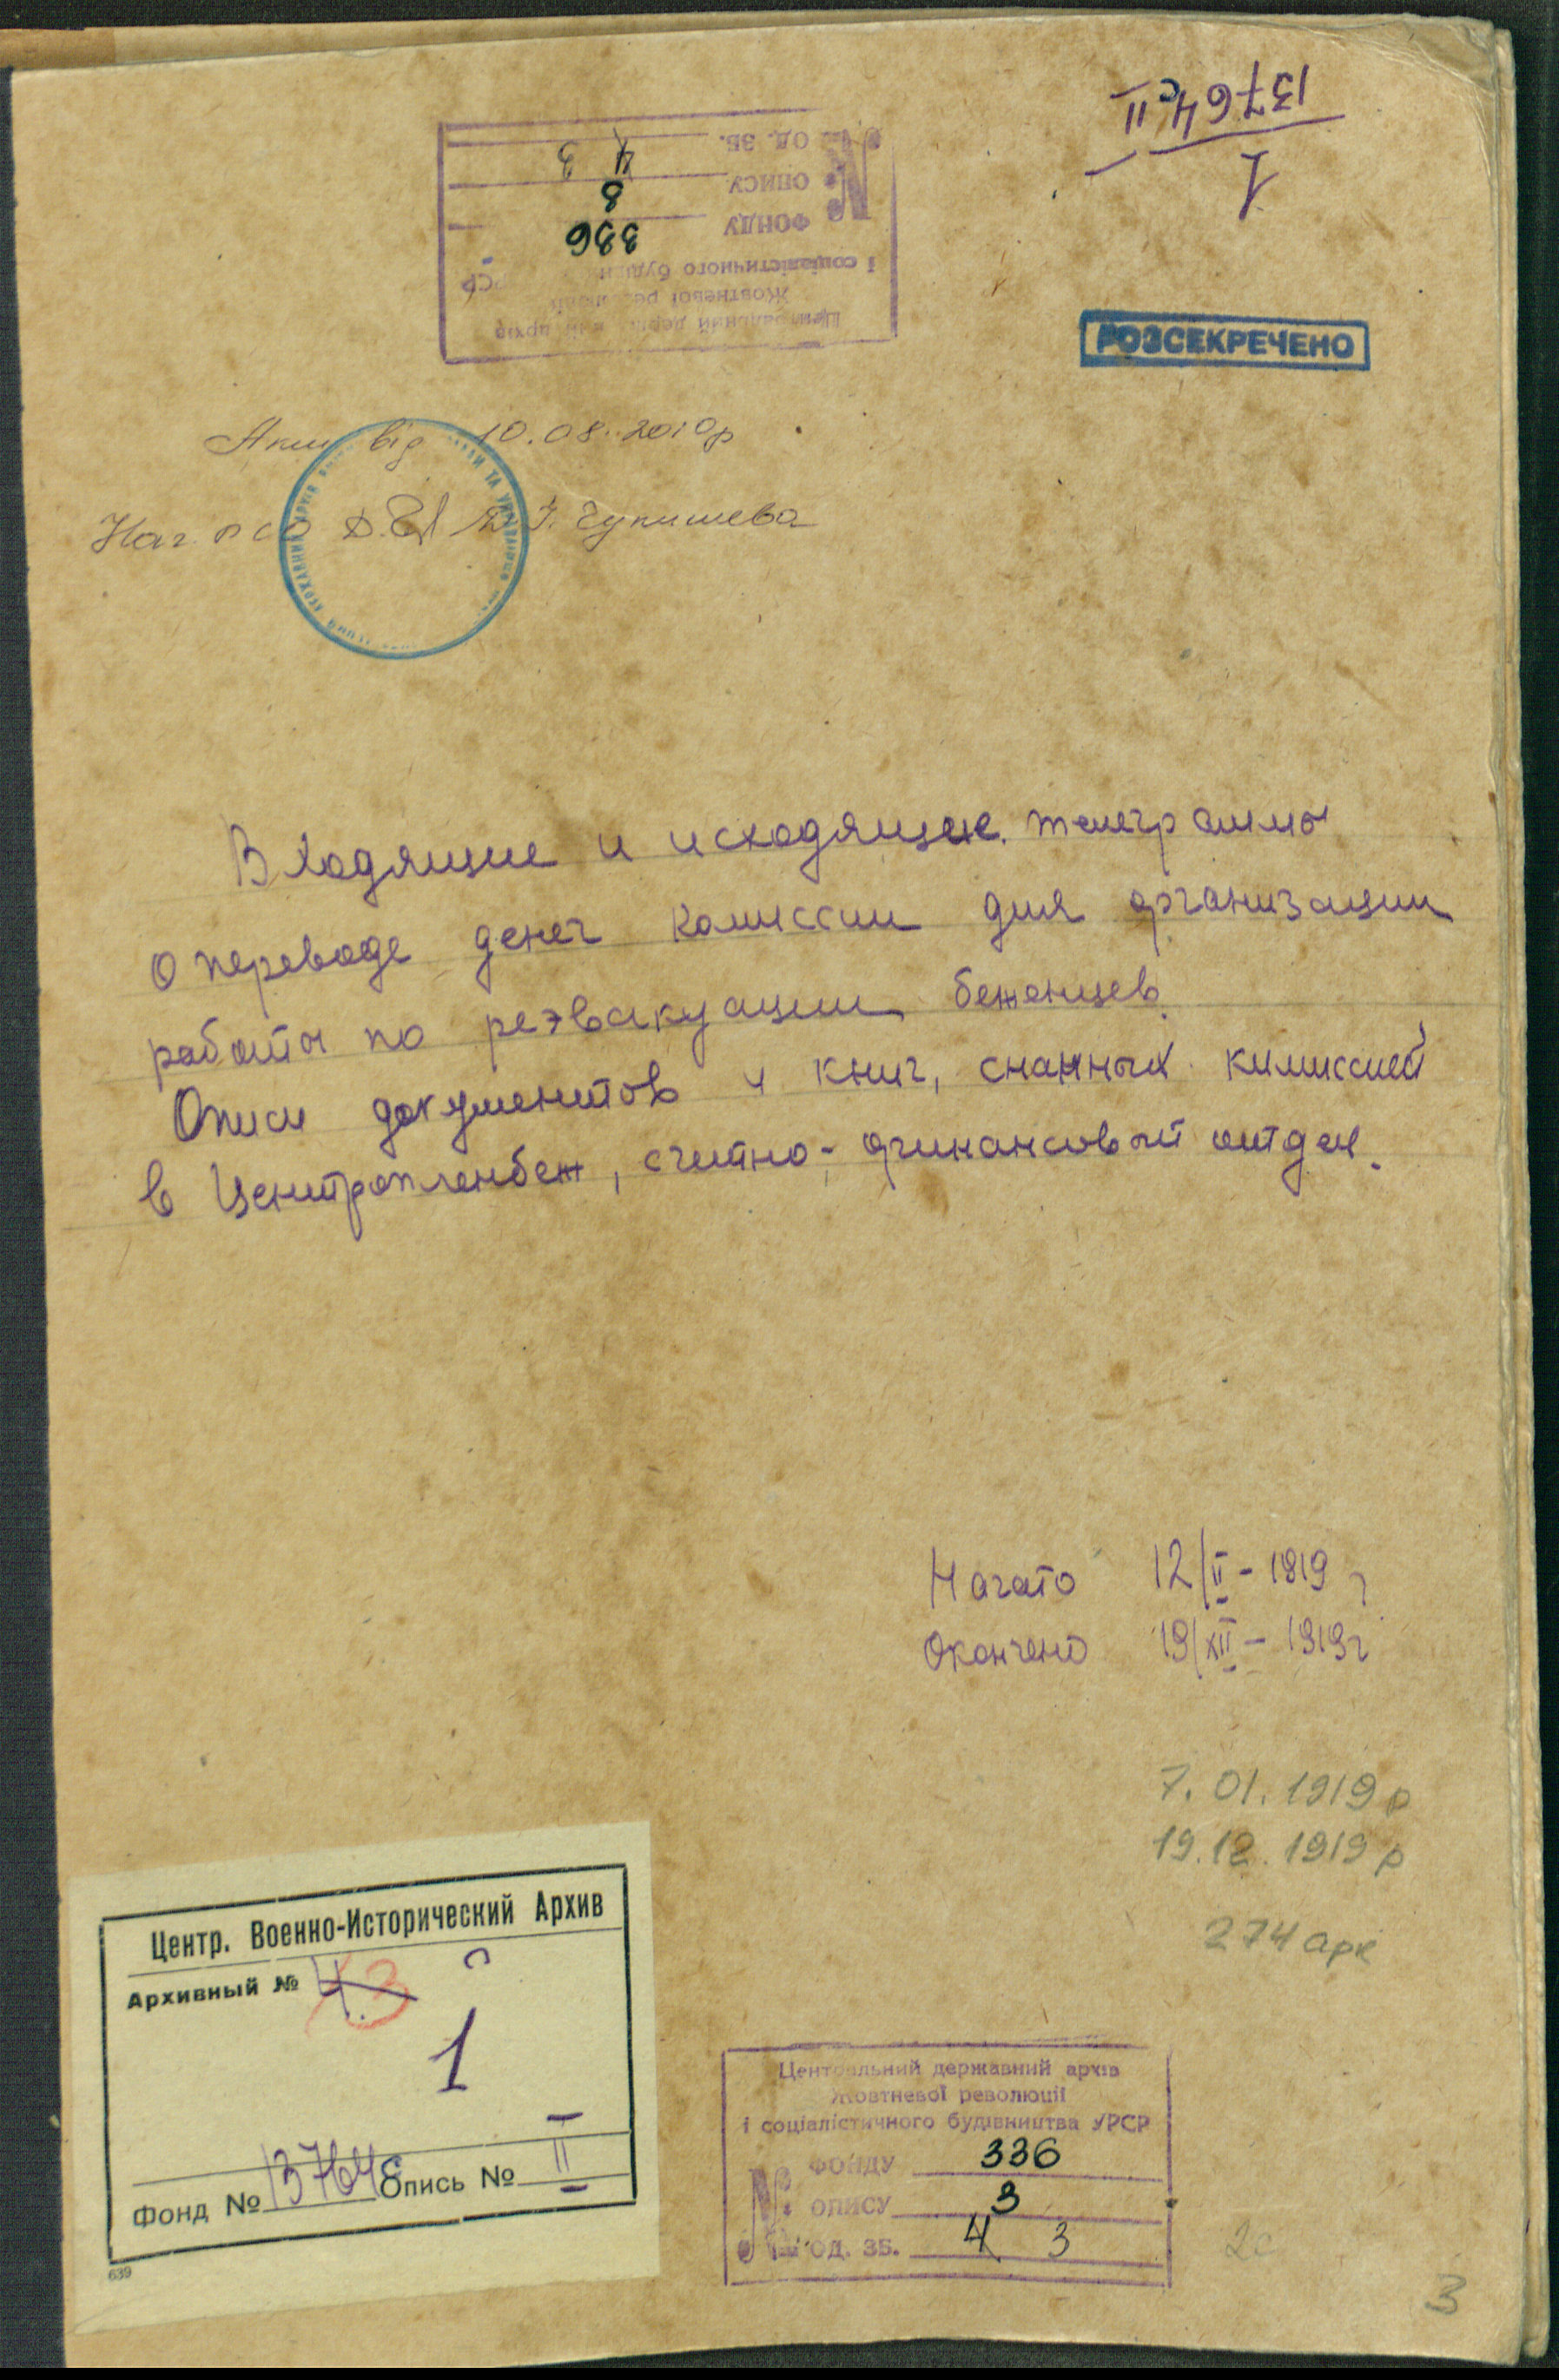 13764с II
1
Центральний державний архів
Жовтневої революції
і соціалістичного будівн
ФОНДУ 336
ОПИСУ 8
№ ОД. ЗБ. 4 3
РОЗСЕКРЕЧЕНО
Акт від 10.08.2010р
Нач. РСО
Входящие и исходящие телеграммы
о переводе денег комиссии для организации
работы по реэвакуации беженцев.
Описи документов и книг, сданных комиссией
в Центропленбеж, счетно-финансовый отдел.
Начато 12/II - 1919 г
Окончено 19/XII - 1919г
7.01.1919р
19.12.1919р
274 арк
Центр. Военно-Исторический Архив
Архивный № 4 3 с
1
Фонд № 13764с Опись № II
639
Центральний державний архів
Жовтневої революції
і соціалістичного будівництва УРСР
ФОНДУ 336
№ ОПИСУ 3
№ ОД. ЗБ. 4 3
2с
3